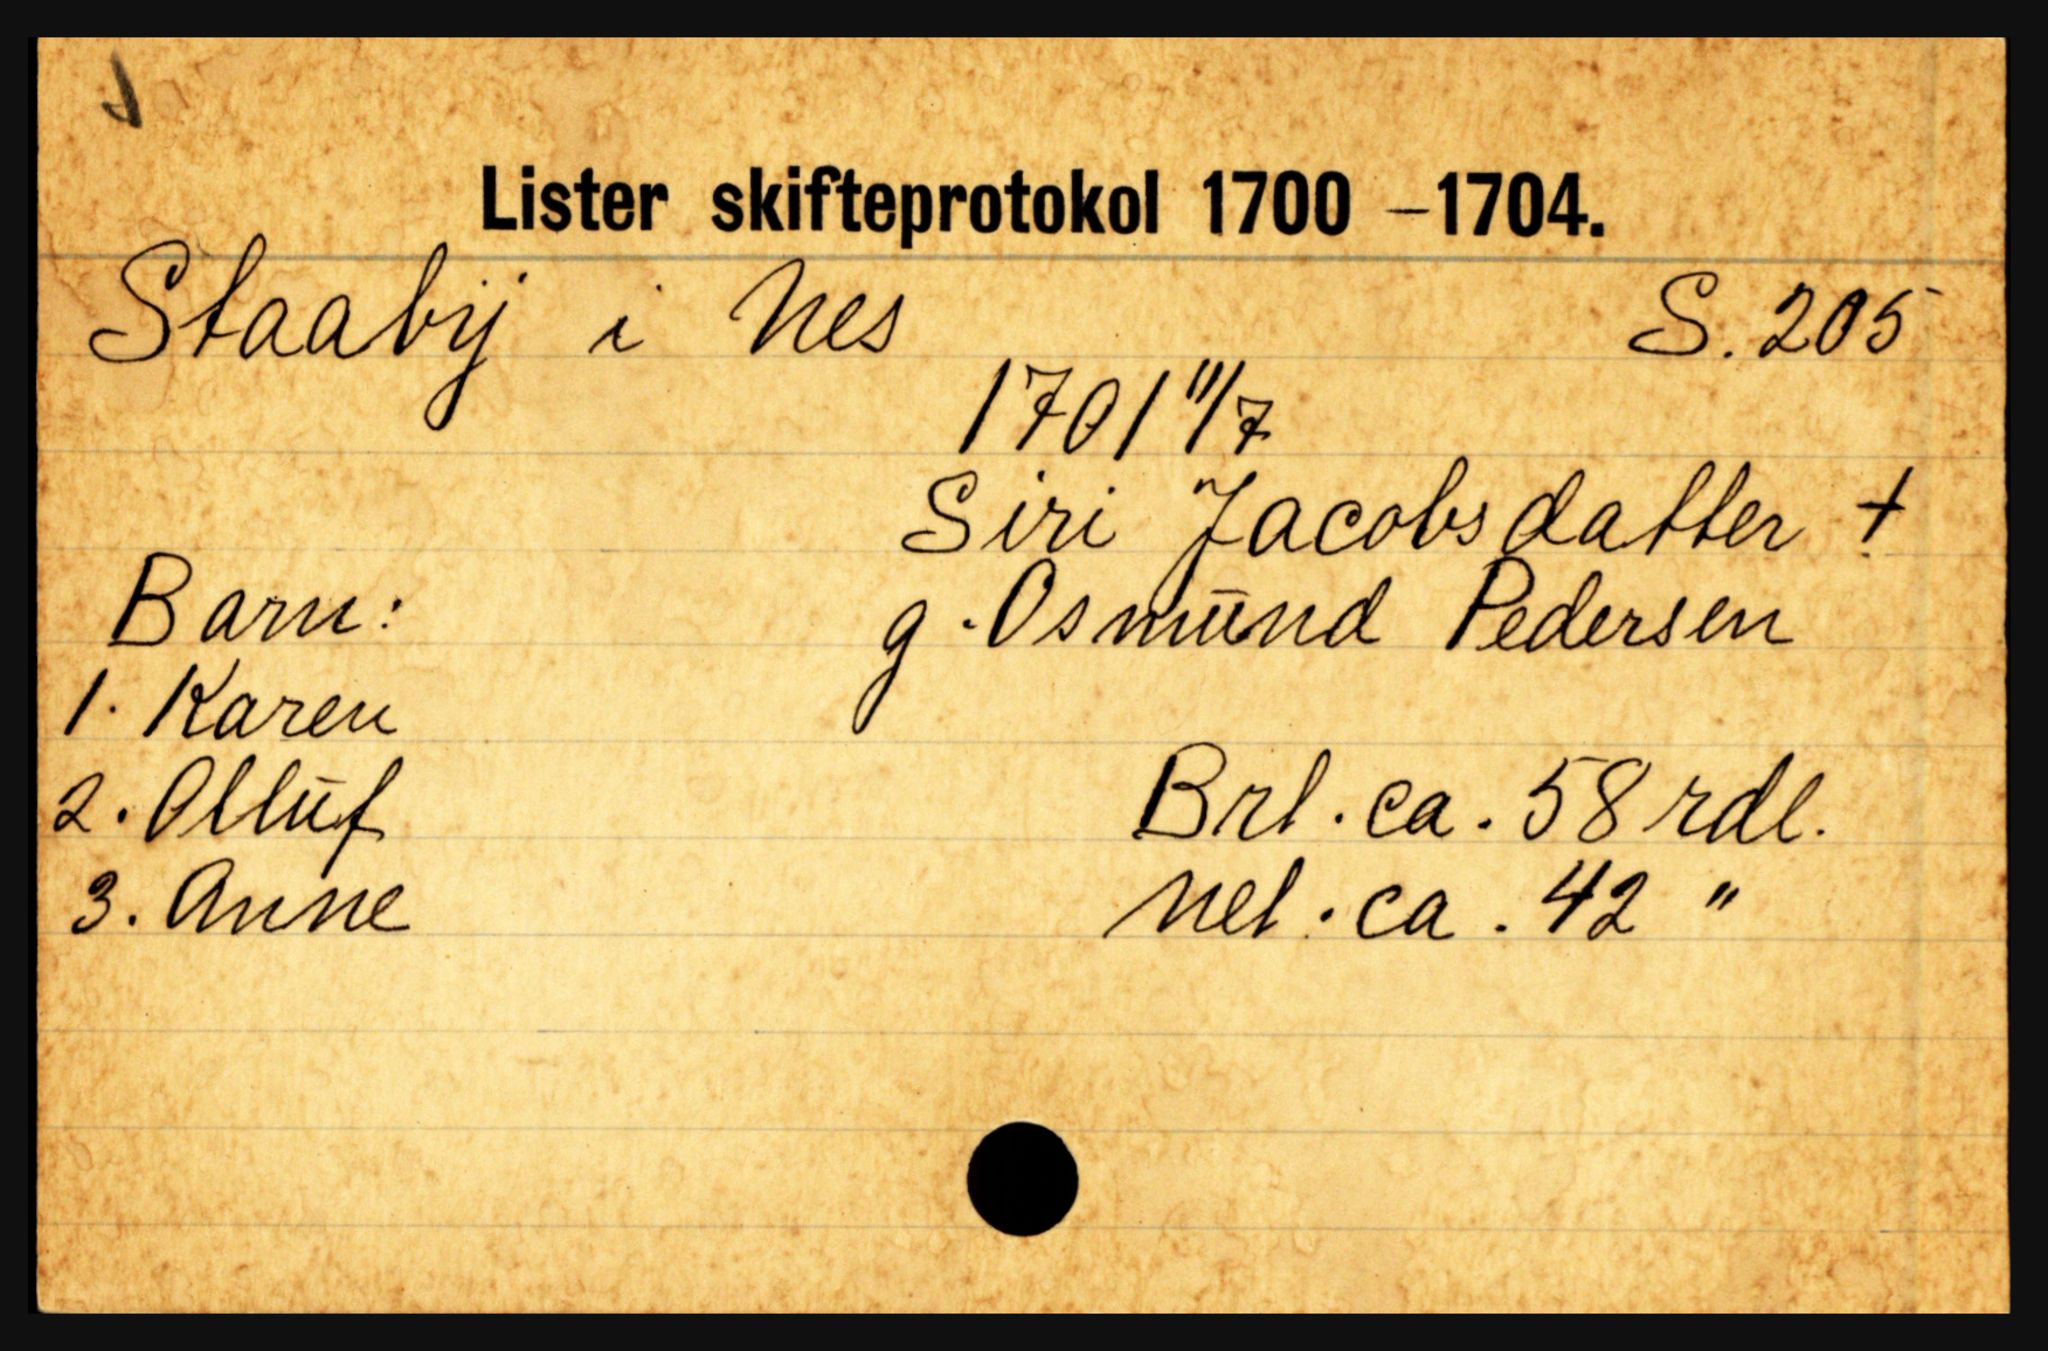 Lister skifteprotokol 1700 - 1704.
Staabij i Nes S. 205
1701 11/7
Siri Jacobsdatter +
Barn: g. Osmund Pedersen
1. Karen
2. Olluf Brl. ca. 58 rdl.
3. Anne Nel. ca. 42 "